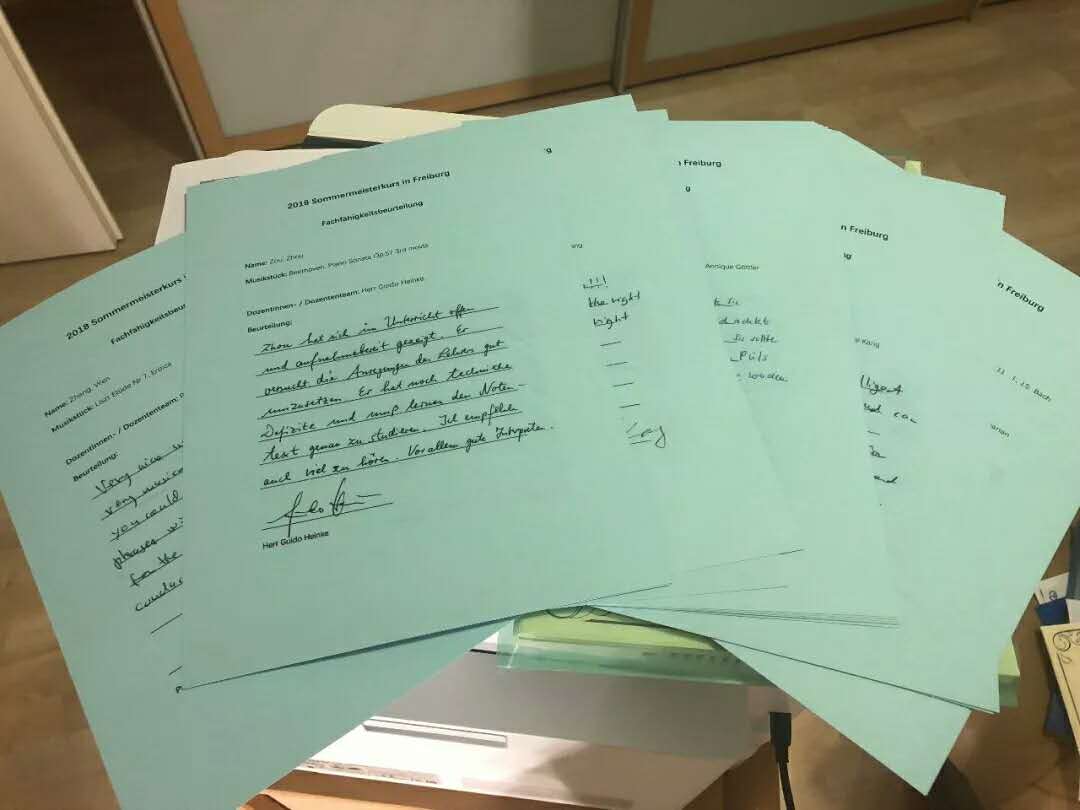 2018 Sommermeisterkurs in Freiburg
Fachfähigkeitsbeurteilung
Name: Zou, Zhou
Musikstück: Beethoven, Piano Sonata Op.57 3rd
Dozentinnen- / Dozententeam: Herr Guido Heinke
Beurteilung:
Zhou hat sich im Unterricht offen
und aufnahmebereit gezeigt. Er
versucht die Anregungen des Lehrers gut
umzusetzen. Er hat noch technische
Defizite und muß lernen den Noten-
text genau zu studieren. Ich empfehle
auch viel zu hören. Vor allem gute Interpreten.
Herr Guido Heinke
2018 Sommermeisterkurs
Fachfähigkeitsbeur
Name: Zhang, Wen
Musikstück: Liszt Etüde Nr 7, Eroica
Dozentinnen- / Dozententeam:
Beurteilung:
Very nice
very music
you could
phrases wi
for the
conduc
ng
ung
!!!
the right
right
n Freiburg
g
Annique Göttler
sollte
n Freiburg
ng
Kang
lligent
and can
n Freiburg
11. 1, 15. Bach
arian